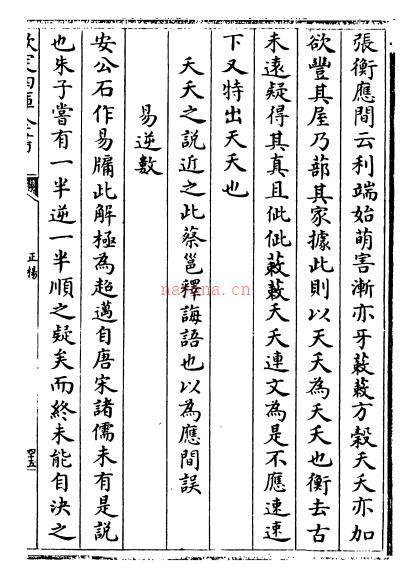 張衡應間云利端始萌害漸亦牙蔌蔌方穀夭夭亦加
欲豐其屋乃蔀其家據此則以天夭為夭夭也衡去古
未遠疑得其真且佌佌蔌蔌夭夭連文為是不應速速
下又特出天夭也
夭夭之說近之此蔡邕釋誨語也以為應間誤
易逆數
安公石作易牖此解極為超邁自唐宋諸儒未有是說
也朱子嘗有一半逆一半順之疑矣而終未能自決之
欽定四庫全書
正楊
nayona.cn